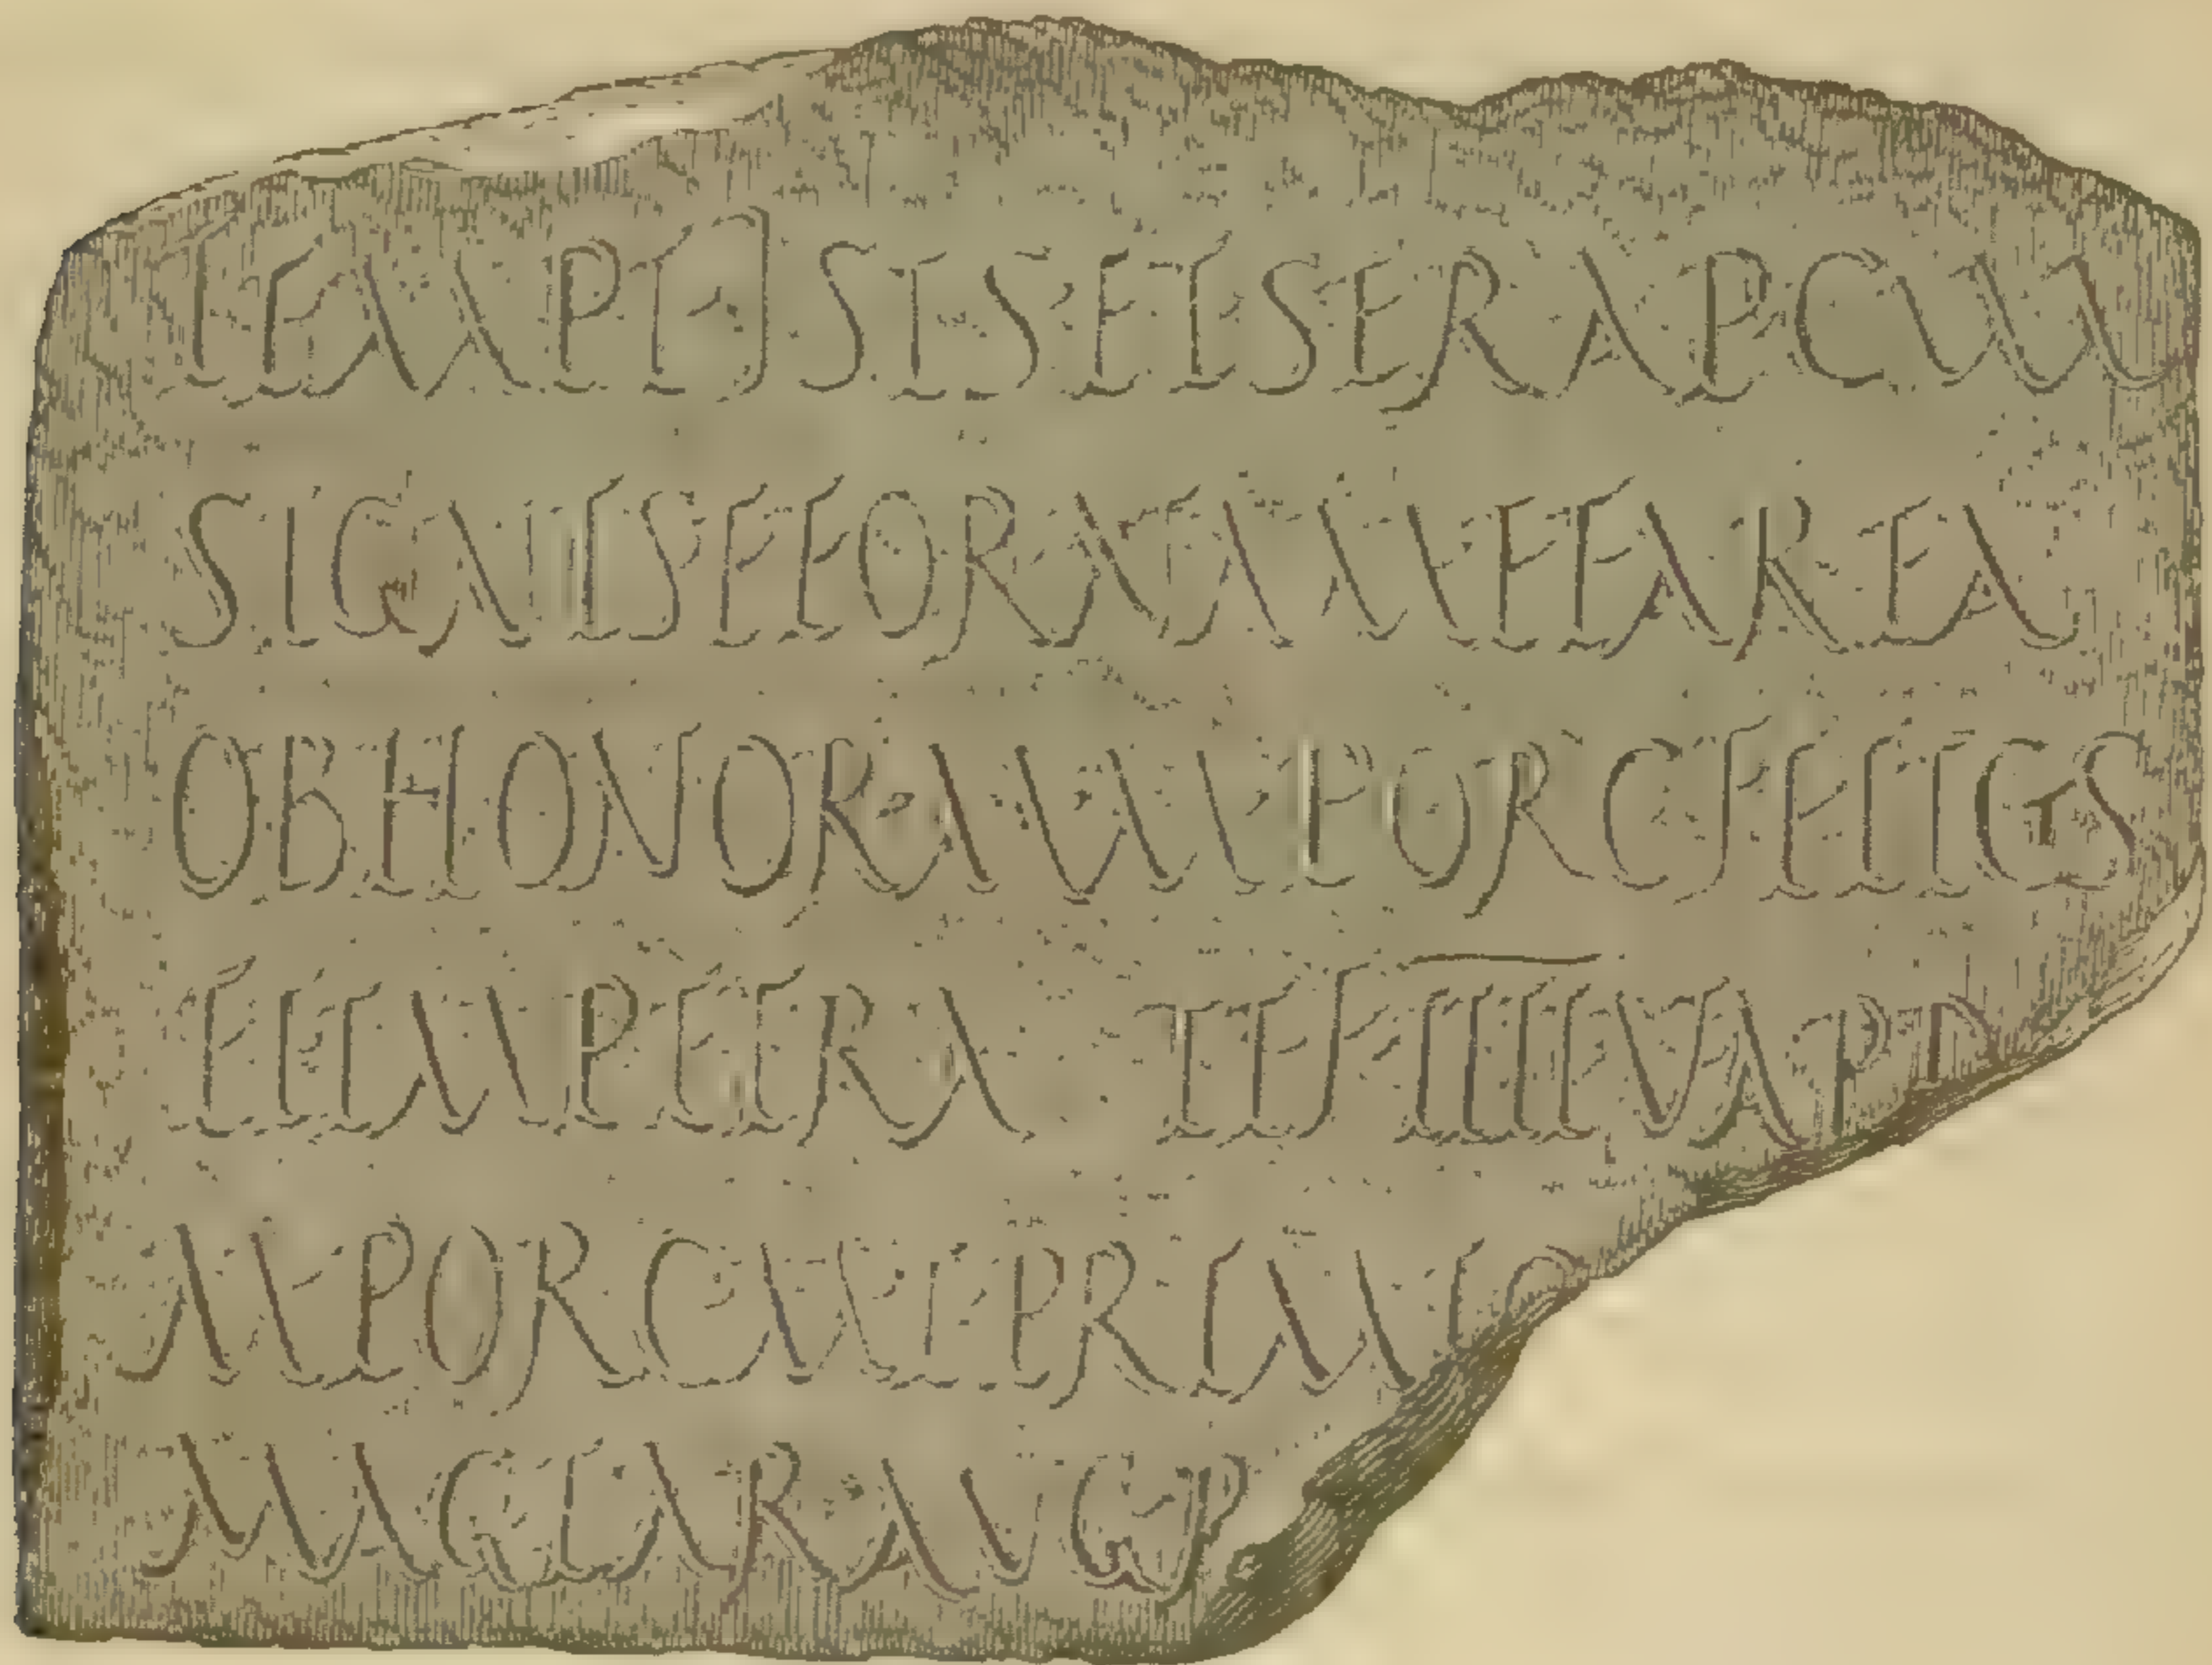 TEMPLISISETSERAPCVM
SIGNISETORNAMETAREA
OBHONORMMPORCFELIGS
ETIMPETRA TIFIIIIVAPD
MPORCMLPRIMIG
MAGLARAVGP